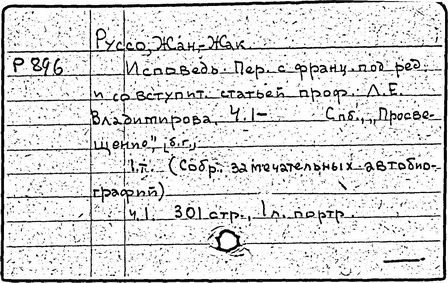 Руссо, Жан-Жак
Р 896 Исповедь. Пер. с франц. под ред.
и со вступит. статьей проф. Л.Е.
Владимирова, Ч.1- Спб., „Просве-
щение", [б.г.,
1.п. (Собр. замечательных автобио-
графий)
Ч.1. 301 стр., 1 л. портр.